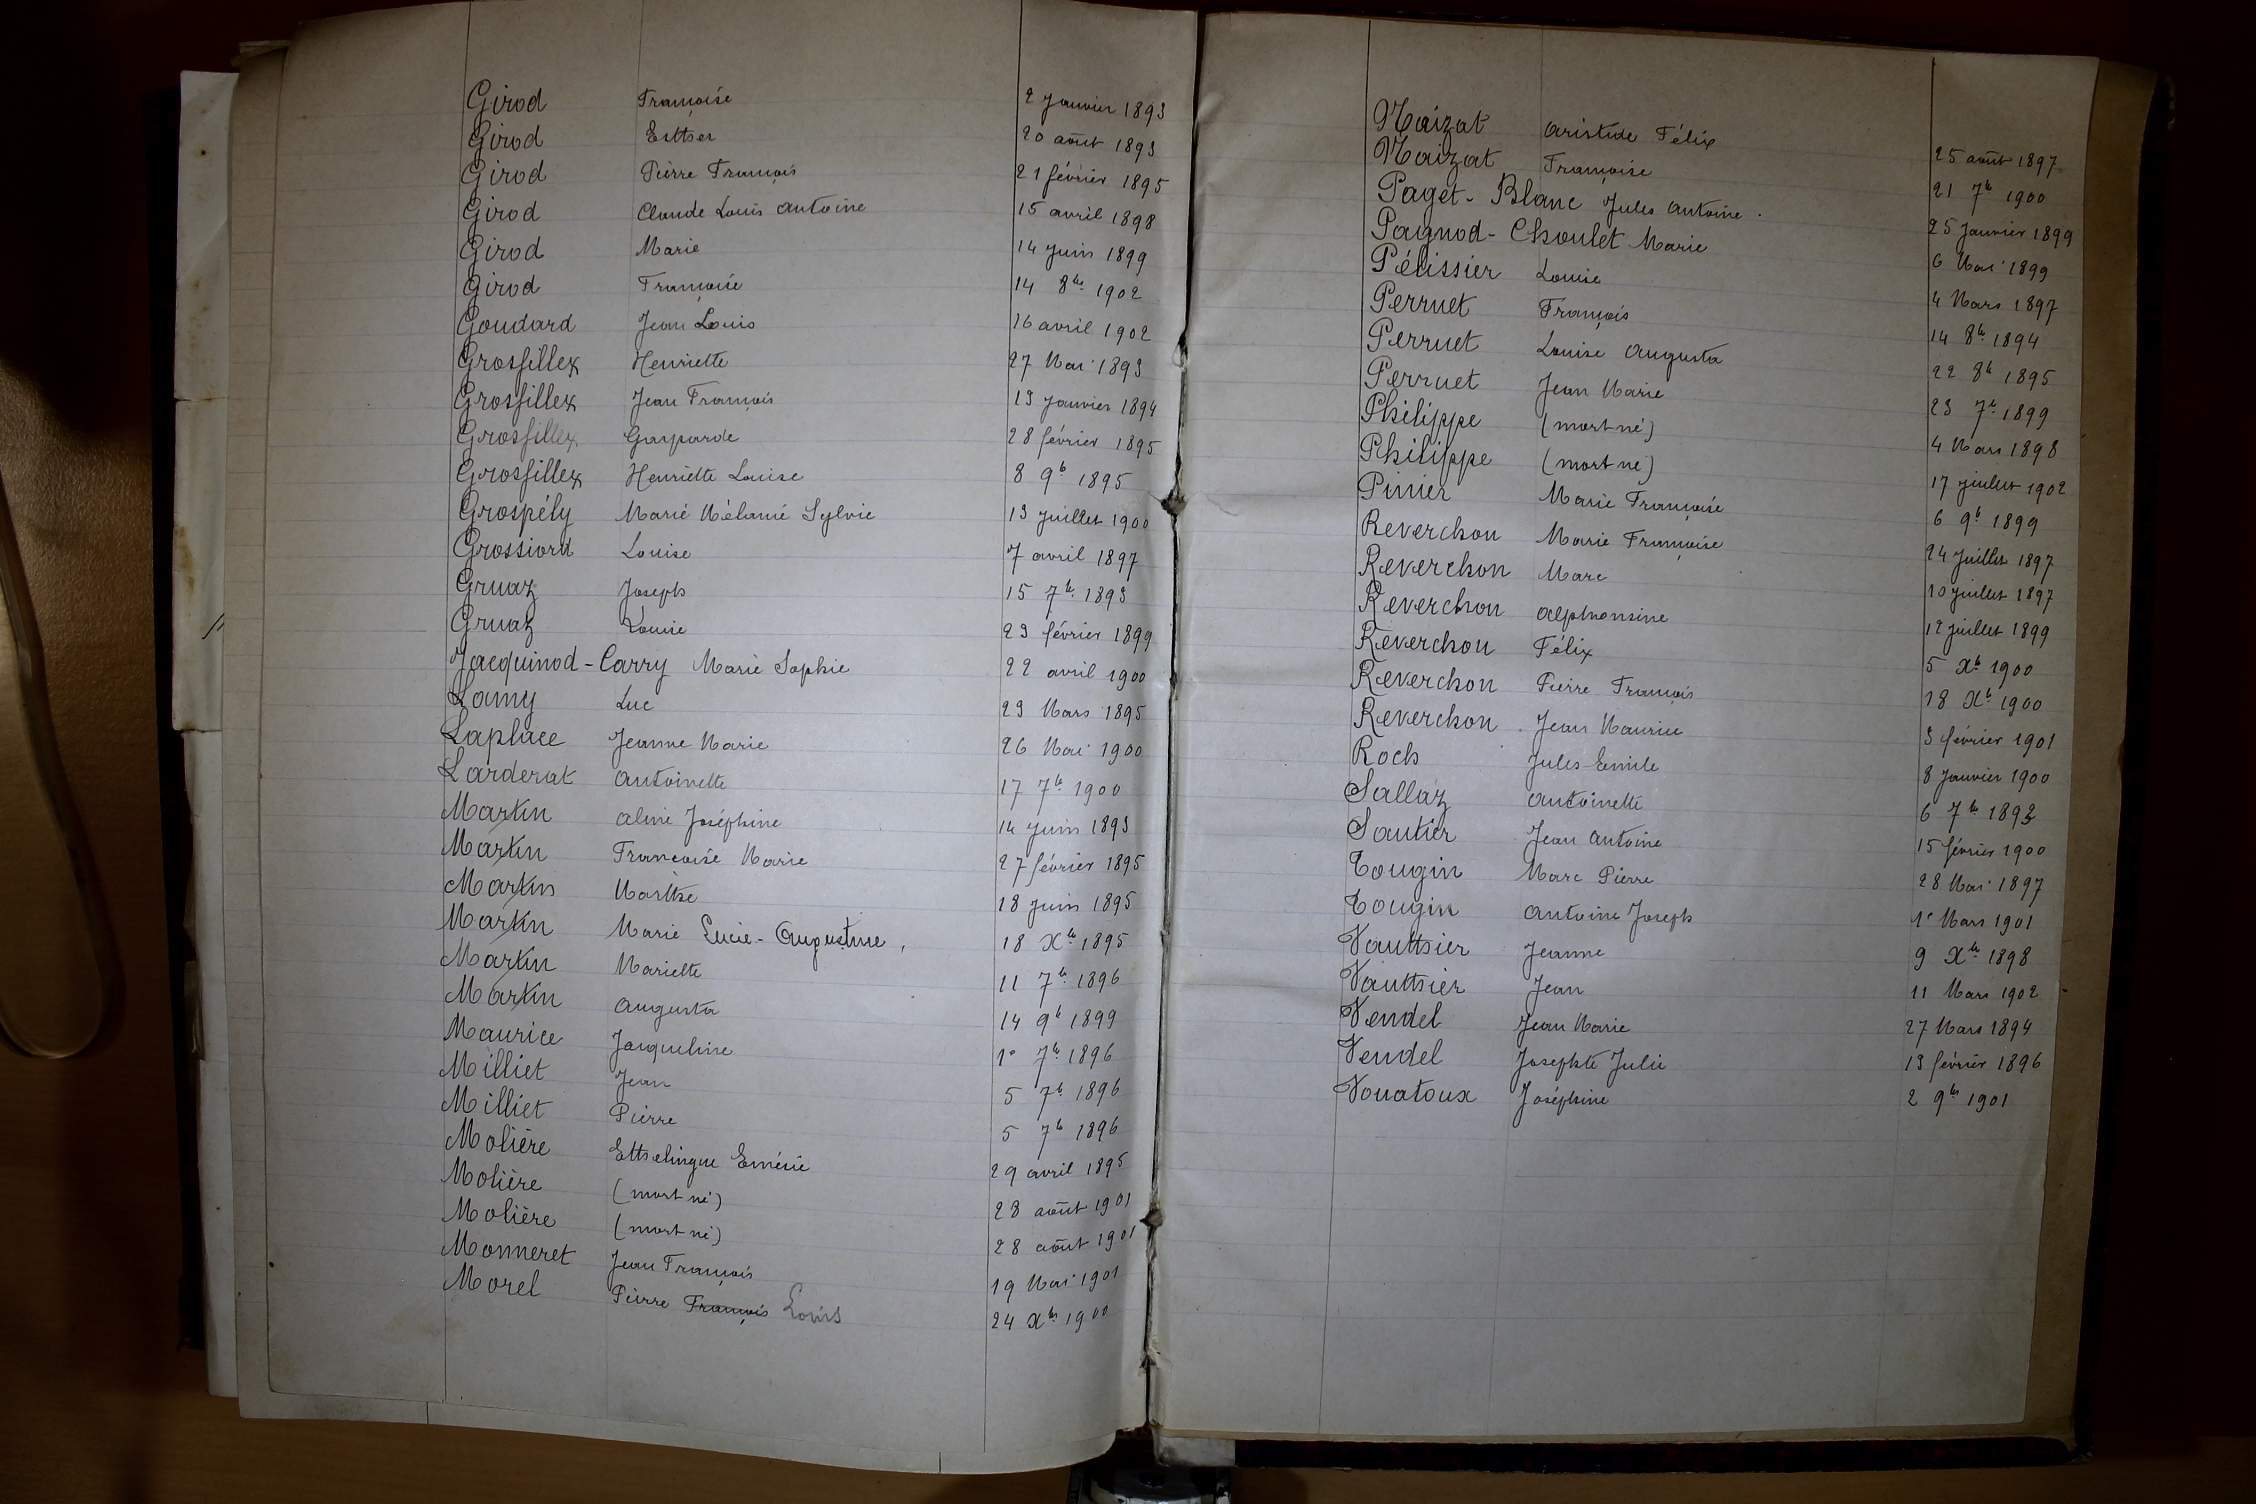 Girod Françoise 2 Janvier 1893
Girod Esther 20 août 1893
Girod Pierre François 21 février 1895
Girod Claude Louis Antoine 15 avril 1898
Girod Marie 14 Juin 1899
Girod Françoise 14 8bre 1902
Goudard Jean Louis 16 avril 1902
Grosfillex Henriette 27 Mai 1893
Grosfillex Jean François 13 Janvier 1894
Grosfillex Gasparde 28 février 1895
Grosfillex Henriette Louise 8 9b 1895
Grospély Marie Mélanie Sylvie 13 Juillet 1900
Grossiord Louise 7 avril 1897
Gruaz Joseph 15 7b 1893
Gruaz Louise 23 février 1899
Jacquinod-Carry Marie Sophie 22 avril 1900
Lamy Luc 23 Mars 1895
Laplace Jeanne Marie 26 Mai 1900
Larderat Antoinette 17 7b 1900
Martin Aline Joséphine 14 Juin 1893
Martin Françoise Marie 27 février 1895
Martin Marthe 18 Juin 1895
Martin Marie Lucie-Augustine, 18 Xb 1895
Martin Mariette 11 7b 1896
Martin Augusta 14 9b 1899
Maurice Jacqueline 1° 7b 1896
Milliet Jean 5 7b 1896
Milliet Pierre 5 7b 1896
Molière Ethelingue Emérie 29 avril 1895
Molière (mort né) 28 août 1901
Molière (mort né) 28 août 1901
Monneret Jean François 19 Mai 1901
Morel Pierre François Louis 24 Xbre 1900
Naizat Aristide Félix 25 août 1897
Naizat Françoise 21 7b 1900
Paget-Blanc Jules Antoine. 25 Janvier 1899
Pagnod-Choulet Marie 6 Mai 1899
Pélissier Louise 4 Mars 1897
Perruet François 14 8b 1894
Perruet Louise Augusta 22 8b 1895
Perruet Jean Marie 23 7b 1899
Philippe (mort né) 4 Mars 1898
Philippe (mort né) 17 Juillet 1902
Pinier Marie Françoise 6 9b 1899
Reverchon Marie Françoise 24 Juillet 1897
Reverchon Marc 10 Juillet 1897
Reverchon Alphonsine 12 Juillet 1899
Reverchon Félix 5 Xb 1900
Reverchon Pierre François 18 Xb 1900
Reverchon Jean Maurice 3 février 1901
Roch Jules Emile 8 Janvier 1900
Sallaz Antoinette 6 7b 1893
Sautier Jean Antoine 15 février 1900
Tougin Marc Pierre 28 Mai 1897
Tougin Antoine Joseph 1° Mars 1901
Vauthier Jeanne 9 Xb 1898
Vauthier Jean 11 Mars 1902
Vendel Jean Marie 27 Mars 1894
Vendel Josephte Julie 13 février 1896
Vouatoux Joséphine 2 9bre 1901